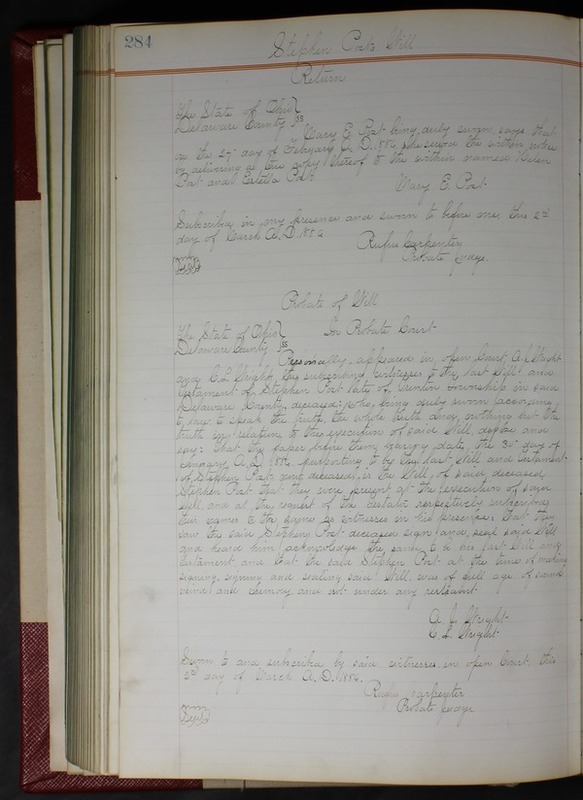 284
Stephen Posts Will
Return
The State of Ohio }
Delaware County } ss
Mary E. Post being duly sworn says that
on the 27 day of February A.D. 188 she served the within notice
by delivering a true copy thereof to the within named Helen
Post and Estella Post
Mary E. Post
Subscribed in my presence and sworn to before me, this 2nd
day of March A.D. 188
Rufus Carpenter
Probate Judge.
Seal
Probate of Will
The State of Ohio } In Probate Court
Delaware County } ss
Personally appeared in open Court A. J. Wright
and C. L. Wright, the subscribing witnesses to the last Will and
Testament of Stephen Post late of Township in said
Delaware County, deceased; who, being duly sworn according
to law to speak the truth, the whole truth and nothing but the
truth in relation to the execution of said Will, depose and
say: That the paper before them, carrying date, the 30 day of
January A.D. 188 purporting to be the last Will and Testament
of Stephen Post now deceased, is the Will of said deceased
Stephen Post that they were present at the execution of said
Will, and at the request of the testator respectively subscribed
their names to the same as witnesses in his presence; that they
saw the said Stephen Post deceased sign and seal said Will
and heard him acknowledge the same to be his last Will and
Testament and that the said Stephen Post at the time of making
signing, and sealing said Will was of full age of sound
mind and memory and not under any restraint
A. J. Wright
C. L. Wright
Sworn to and subscribed by said witnesses in open Court this
2nd day of March A.D. 188
Rufus Carpenter
Probate Judge
Seal